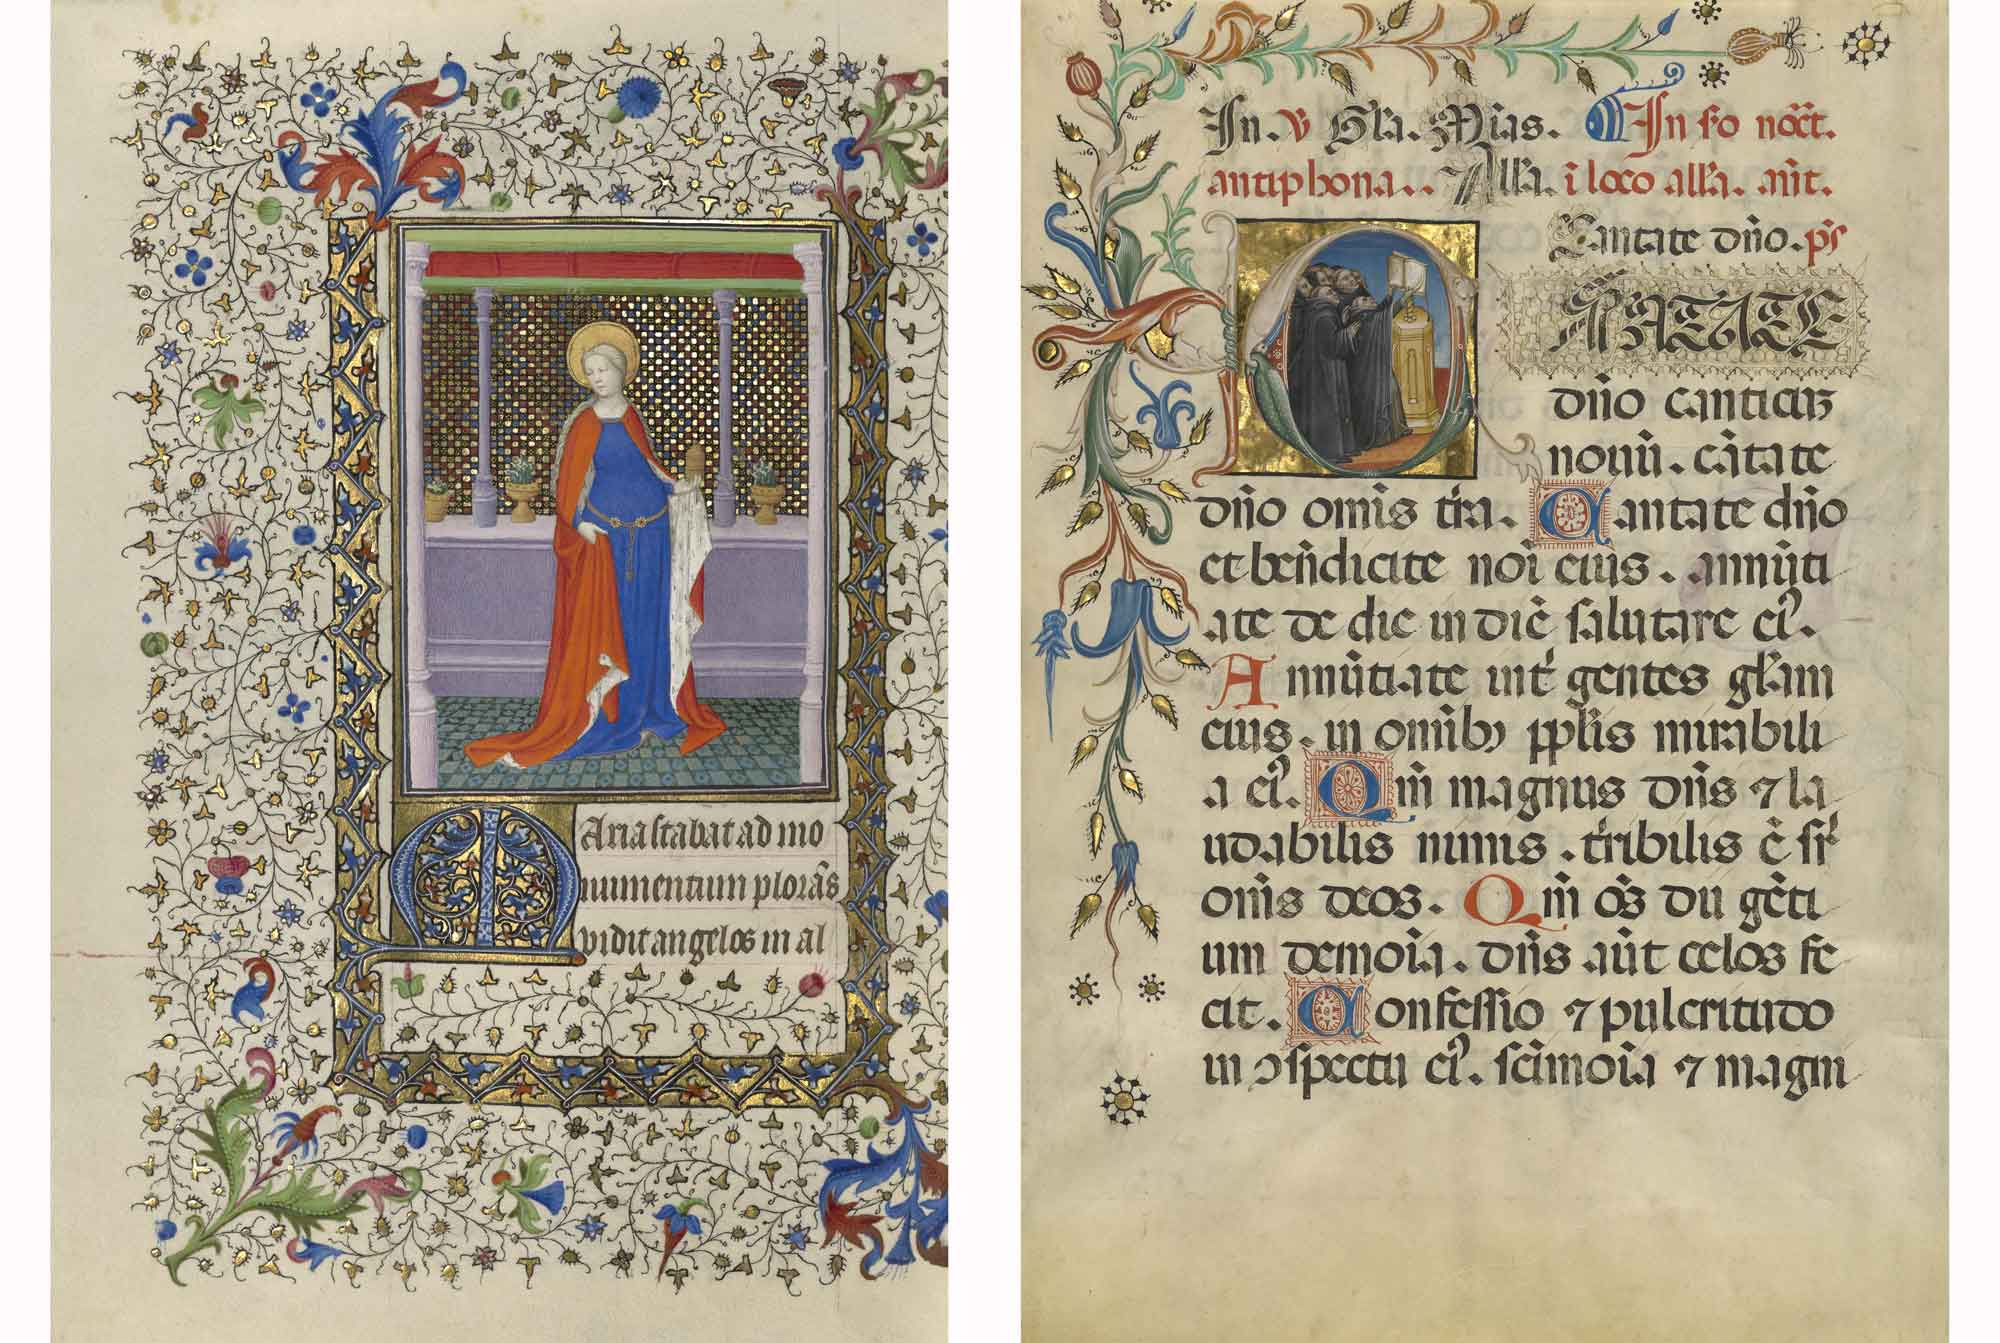 MAria stabat ad mo
numentum plorās
vidit angelos in al
In. v Gła. Mias. In s̄o noct̄.
antiphona.. Allā. ī loco allā. añt.
Cantate dño. ps
CANTATE
dño canticū
novū. cātate
dño omīs tr̄a. Cantate dño
et beñdicite noī eius. annūti
ate de die in diē salutare ei᾽.
Annūtiate int̄ gentes gl̄am
eius. in omīb᾽ ppl̄is mirabili
a ei᾽. Qm̄ magnus dn̄s ⁊ la
udabilis nimis. tr̄ibilis ē sr̄
omīs deos. Qm̄ os̄ dii gēti
um demoīa. dn̄s aūt celos fe
cit. Confessio ⁊ pulcritudo
in ↄspectu ei᾽. scīmoīa ⁊ magni